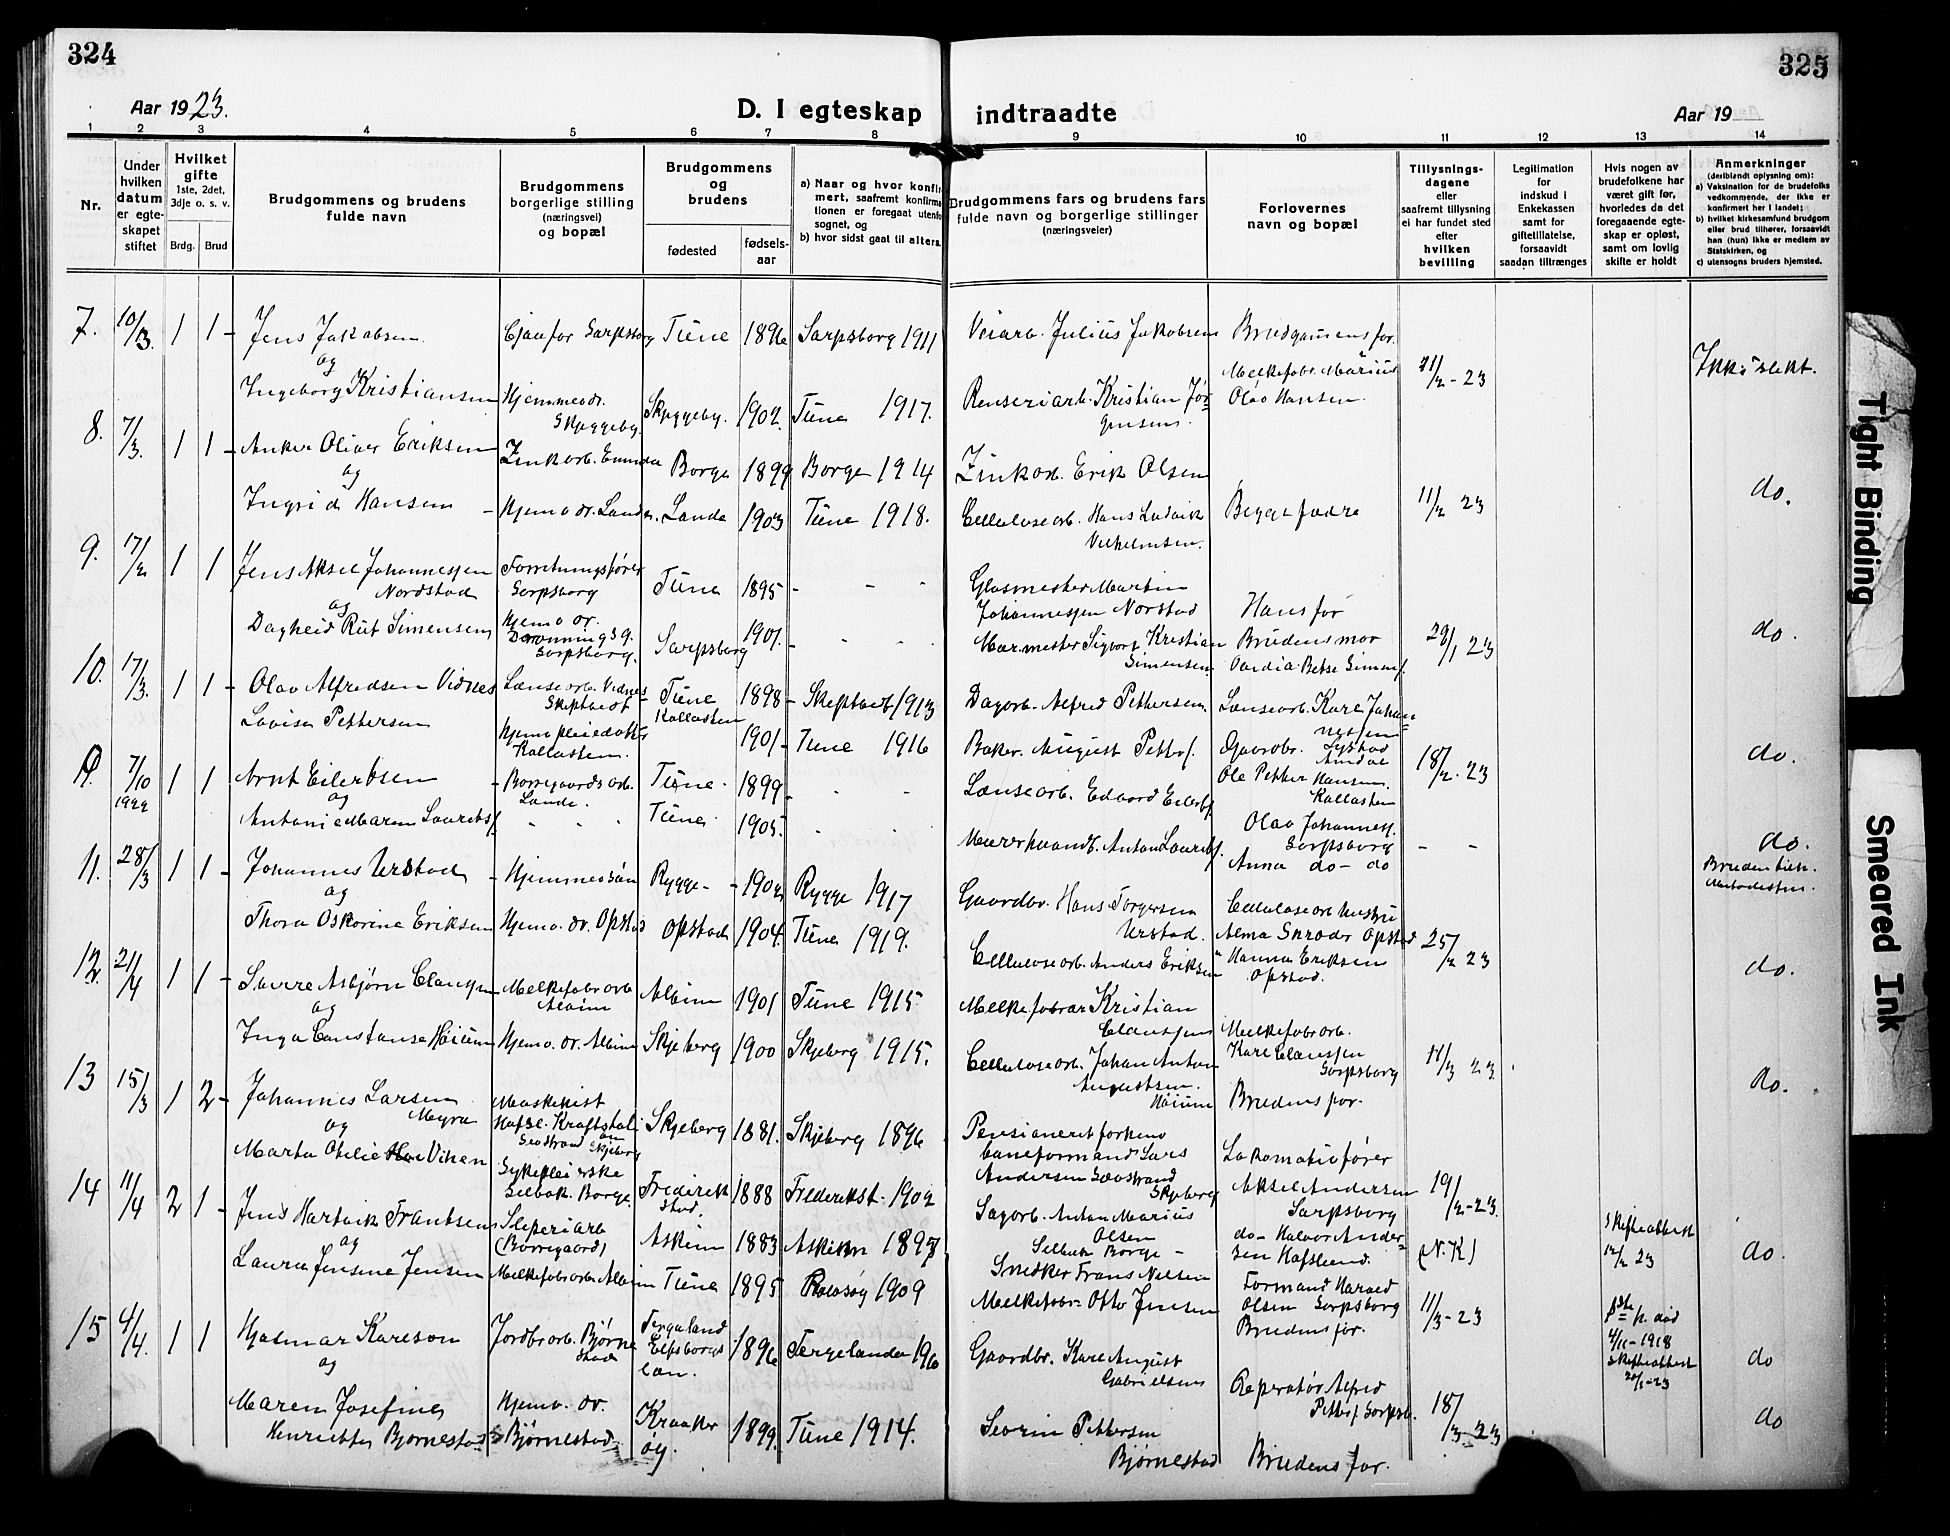 324
325
Aar 1923.
D. I egteskap indtraadte
Aar 19
1 2 3 4 5 6 7 8 9 10 11 12 13 14
Nr.
Under hvilken datum er egteskapet stiftet
Hvilket gifte
1ste, 2det, 3dje o. s. v.
Brdg. Brud
Brudgommens og brudens fulde navn
Brudgommens borgerlige stilling (næringsvei) og bopæl
Brudgommens og brudens
fødested
fødsels-aar
a) Naar og hvor konfirmert, saafremt konfirmationen er foregaat utenfor sognet, og
b) hvor sidst gaat til alters.
Brudgommens fars og brudens fars fulde navn og borgerlige stillinger (næringsveier)
Forlovernes navn og bopæl
Tillysnings-dagene eller saafremt tillysning ei har fundet sted efter hvilken bevilling
Legitimation for indskud i Enkekassen samt for giftetillatelse, forsaavidt saadan tiltrænges
Hvis nogen av brudefolkene har været gift før, hvorledes da det foregaaende egteskap er opløst, samt om lovlig skifte er holdt
Anmerkninger (deriblandt oplysning om):
a) Vaksination for de brudefolks vedkommende, der ikke er konfirmert her i landet;
b) hvilket kirkesamfund brudgom eller brud tilhører, forsaavidt han (hun) ikke er medlem av Statskirken, og
c) utensogns bruders hjemsted.
7. 10/3. 1 1 - Jens Jakobsen Sarpsborg Tune 1896 Sarpsborg 1911 Veiarb. Julius Jakobsen Brudgomens far.
og
Melkefabr. Marius 21/2-23 Ikke slekt.
Ingeborg Kristiansen Hjemmedr. Skyggeby. Skyggeby. 1902. Tune 1917. Renseriarb. Kristian Jørgensen. Olav Hansen.
8. 7/3. 1 1 - Anker Oliver Eriksen Zinkarb. Borge 1899 Borge 1914 Zinkarb. Erik Olsen
og
Ingrid Hansen - Hjemv. dr. Lande. Lande 1903 Tune 1918. Cellulosearb. Hans Ludvik Vilhelmsen. Begge fædre 11/2 23 do.
9. 17/2 1 1 Jens Aksel Johannessen Nordstad Forretningsfører Sarpsborg Tune 1895 - - - Glasmester Martin Johannessen Norstad Hans far
og
Dagheid Rut Simensen Hjemv. dr. Dronningsg. Sarpsborg. Sarpsborg 1901. - - - Murmester Sigvart Kristian Simensen Brudens mor 1 23 do.
10. 17/3. 1 1 - Olav Alfredsen Vidnes Lensearb. Vidnes Skiptvedt - Tune 1898 - Skiptvedt 1913 Dagarb. Alfred Pettersen. Lensearb. Karl Johannessen
Lovise Pettersen Kallasten. Kallasten 1901 - Tune 1916 Baker. August Petters. Gaardbr. 18/2. 23 do.
7/10 1922 1 1 Arnt Eilertsen - Borregaards arb. Lande. Tune. 1899 - - - Lensearb. Edvard Eilerts. Ole Petter Hansen. Kallasten
og
Antonie Maren Laurits. - - - Tune. 1905. - - Murerhaandl. Anton Laurits. Olav Johanness. Sarpsborg - - do.
Anna do - do
11. 28/3 1 1 - Johannes Urstad - Hjemmesøn Rygge - 1902 Rygge 1917 Gaardbr. Hans Torgersen Urstad. Bruden
og
Thora Oskarine Eriksen Hjemv. dr. Opstad Opstad 1904. Tune 1919. Cellulosearb. Anders Eriksen Alma Opstad Hanna Eriksen Opstad. 25/2 23 do.
12. 21/4 1 1 - Sverre Asbjørn Clausen Melkefabrarb Alvim Alvim 1901 Tune 1915 Melkefabrar Kristian Clausen Melkefabrarb.
og
Inga Constanse Høium Hjemv. dr. Alvim Skjeberg 1900 Skjeberg 1915. Cellulosearb. Johan Anton Augustsen. Høium Karl Clausen Sarpsborg 11/3 23 do.
13 15/3 1 2 - Johannes Larsen Myra Maskinist Hafsl. Kraftstation Skjeberg Skjeberg 1881. Skjeberg 1896 Pensioneret forhenv. baneformand Lars Andersen Skjeberg Brudens far.
og
Marta Otilie Viken Sykepleierske Selbak. Borge. Fredrikstad. 1888 Frederikst. 1902 Sagarb. Anton Marius Olsen Selbak Borge - Lokomotivfører Aksel Andersen Sarpsborg 19/2-23.
14 11/4 2 1 - Jens Hartvik Frantsen Sliperiarb (Borregaard) Askim 1883 Askim 1897 Snedker Frans Nilsen do - Halvor Andersen Hafslund. (N.K) Skifteattest 12/2 23 do.
og
Laura Jensine Jensen Melkefabrarb. Alvim Tune 1895 Rolvsøy 1909 Melkefabr. Otto Jensen Formand Harald Olsen Sarpsborg Brudens far. 11/3-23 død 4/11-1918 Skifteattest
15 4/4. 1 1 Hjalmar Karlson Jordbrarb. Bjørnestad Elfsborgs län. 1896 Gaardbr. Karl August Gabrielsen Reperatør Alfred Petters. Sarpsb. do
og
Maren Josefine Henriette Bjørnestad Hjemv. dr. Bjørnestad Kraakerøy. 1899. Tune 1914. Severin Pettersen Bjørnestad Brudens far. 18/3-23 do
Tight Binding
Smeared Ink